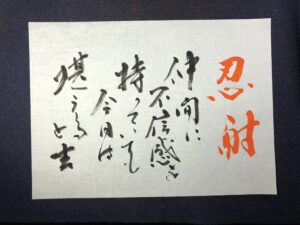 忍耐
仲間に
不信感を
持っていても
今日は
堪えると吉